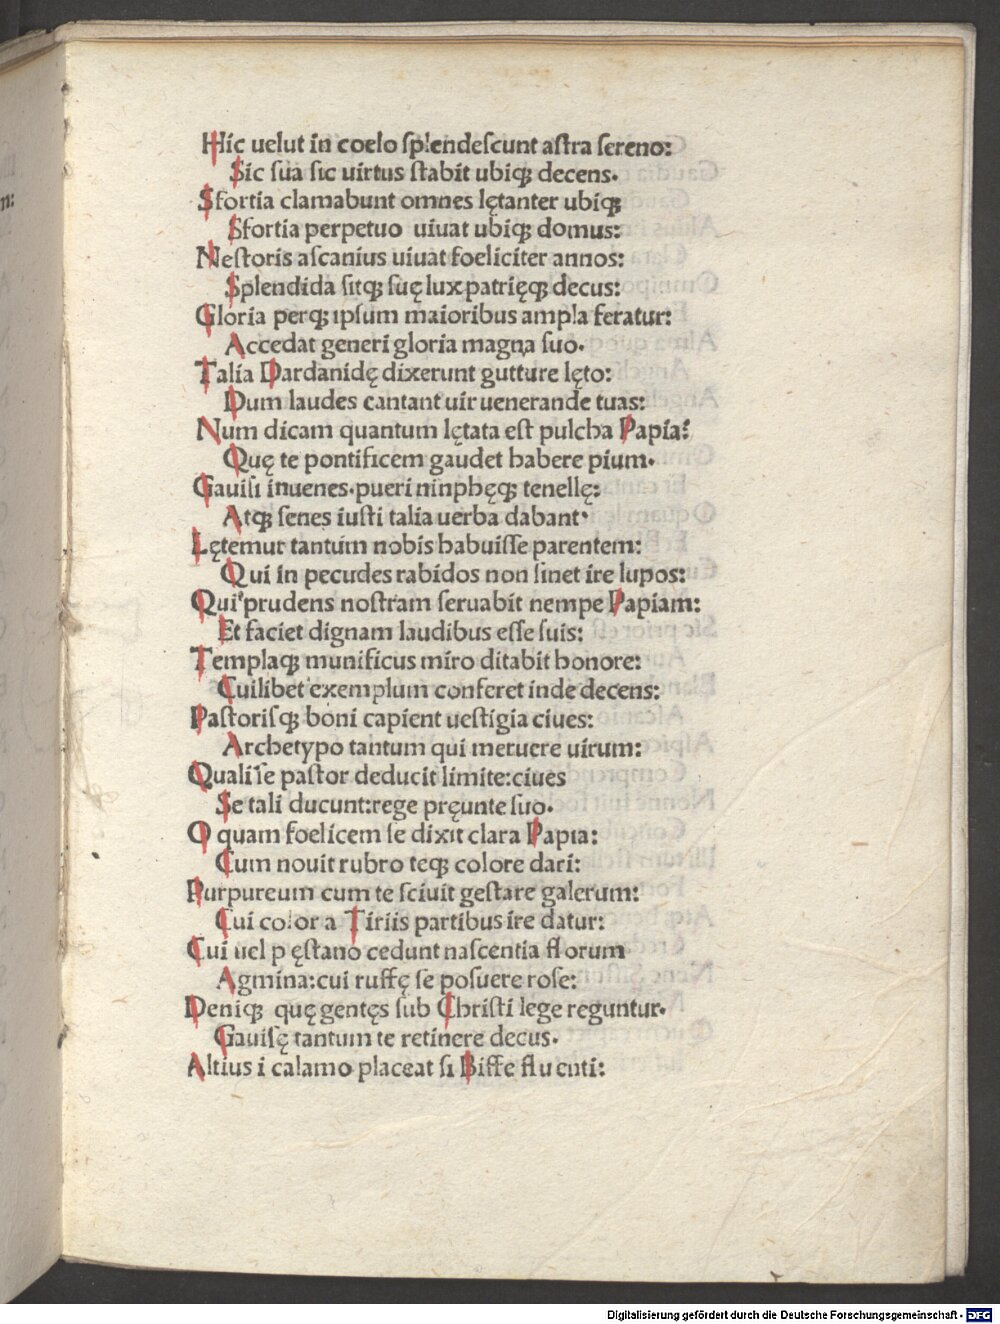 Hic uelut in coelo splendescunt astra sereno:
Sic sua sic uirtus stabit ubiqꝫ decens.
Sfortia clamabunt omnes lętanter ubiqꝫ
Sfortia perpetuo uiuat ubiqꝫ domus:
Nestoris ascanius uiuat foeliciter annos:
Splendida sitqꝫ suę lux patrięqꝫ decus:
Gloria perqꝫ ipsum maioribus ampla feratur:
Accedat generi gloria magna suo.
Talia Dardanidę dixerunt gutture lęto:
Dum laudes cantant uir uenerande tuas:
Num dicam quantum lętata est pulcha Papia?
Quę te pontificem gaudet habere pium.
Gauisi inuenes.pueri ninphęqꝫ tenellę:
Atqꝫ senes iusti talia uerba dabant.
Lętemur tantum nobis habuisse parentem:
Qui in pecudes rabidos non sinet ire lupos:
Qui prudens nostram seruabit nempe Papiam:
Et faciet dignam laudibus esse suis:
Templaqꝫ munificus miro ditabit honore:
Cuilibet exemplum conferet inde decens:
Pastorisqꝫ boni capient uestigia ciues:
Archetypo tantum qui metuere uirum:
Quali se pastor deducit limite:ciues
Se tali ducunt:rege pręunte suo.
O quam foelicem se dixit clara Papia:
Cum nouit rubro teqꝫ colore dari:
Purpureum cum te sciuit gestare galerum:
Cui color a Tiriis partibus ire datur:
Cui uel p ęstano cedunt nascentia florum
Agmina:cui ruffę se posuere rose:
Deniqꝫ quę gentęs sub Christi lege reguntur.
Gauisę tantum te retinere decus.
Altius i calamo placeat si Biffe fluenti:
n:
Digitalisierung gefördert durch die Deutsche Forschungsgemeinschaft - DFG